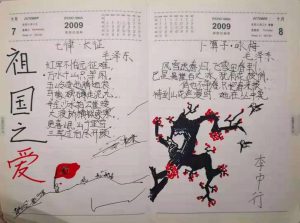 十月 OCTOBER
7
2009
七律·长征
毛泽东
红军不怕远征难,
万水千山只等闲。
五岭逶迤腾细浪,
乌蒙磅礴走泥丸。
金沙水拍云崖暖,
大渡桥横铁索寒。
更喜岷山千里雪,
三军过后尽开颜
祖国之爱
OCTOBER 十月
8
2009
卜算子·咏梅
毛泽东
风雨送春归,飞雪迎春到
已是悬崖百丈冰,犹有花枝俏
俏也不争春,只把春来报
待到山花烂漫时,她在丛中笑
李中行